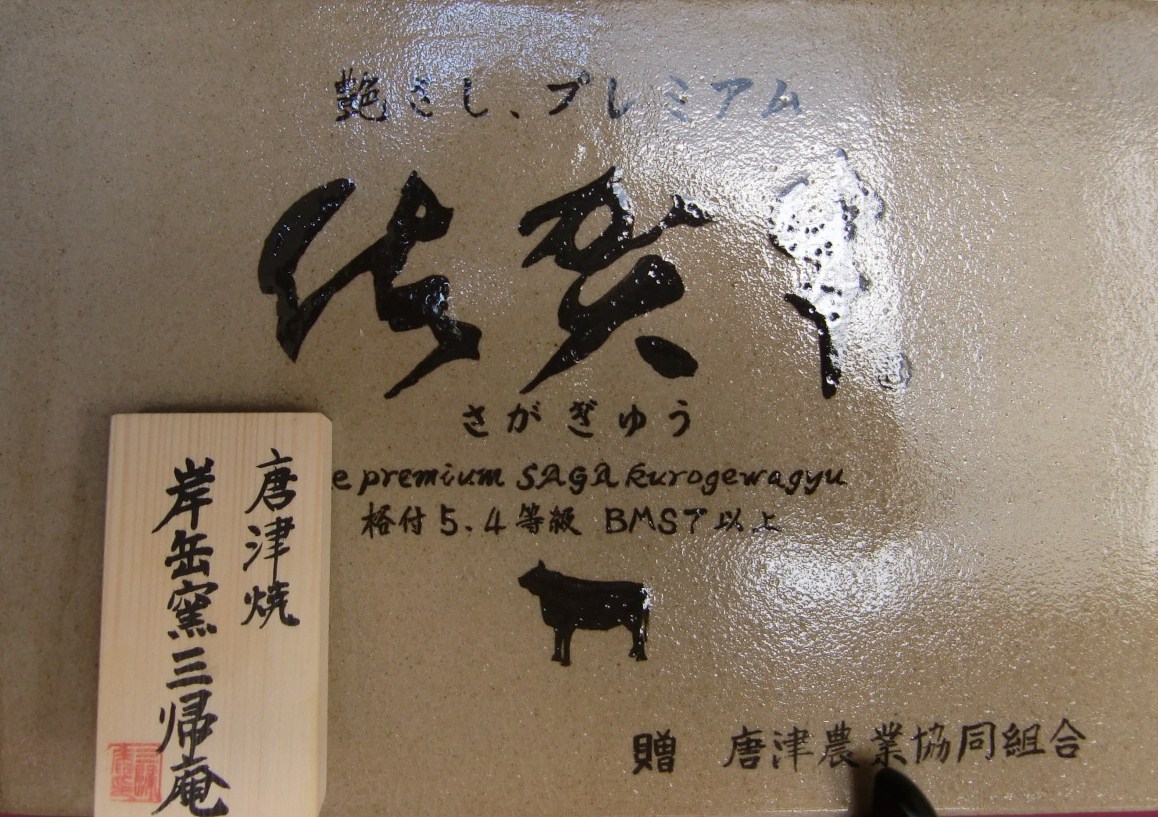 艶さし、プレミアム
佐賀牛
さがぎゅう
e premium SAGA kurogewagyu
格付5.4等級 BMS7以上
贈 唐津農業協同組合
唐津焼
岸岳窯三帰庵